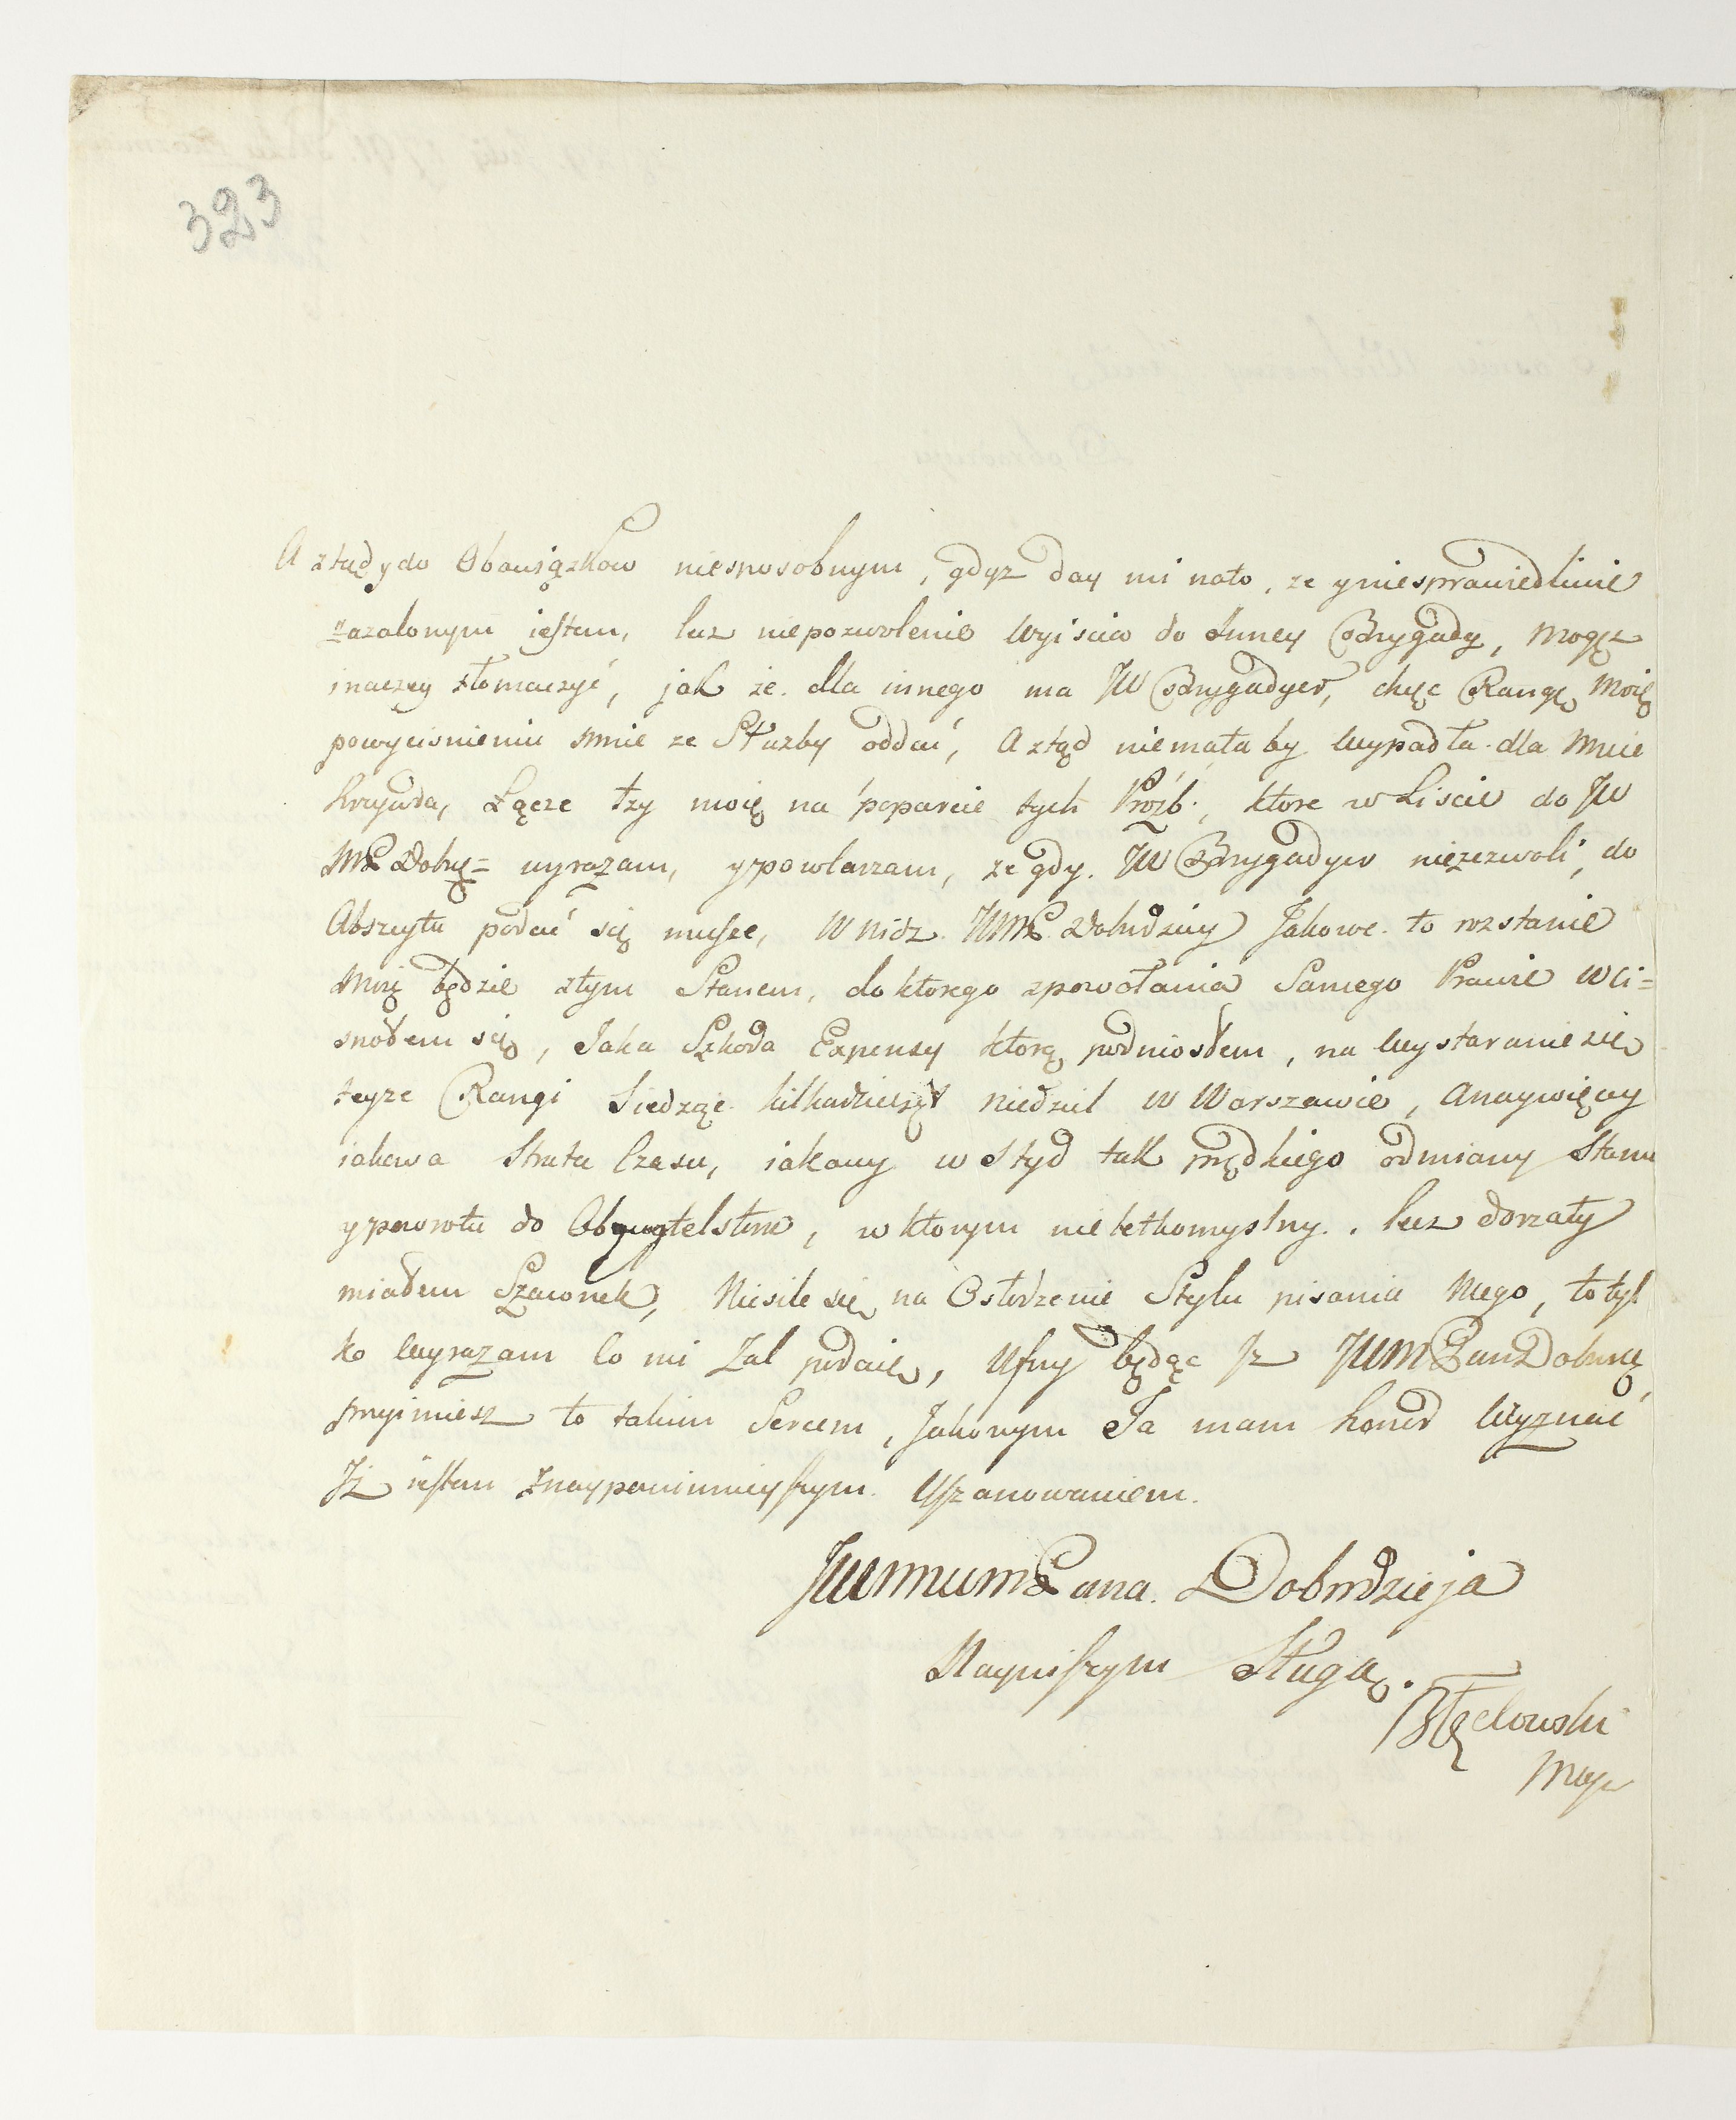 323
A ztąd y do Obowiązkow niesposobnym, gdyz day mi nato, ze y niesprawiedliwie
urazonym iestem, lecz niepozwolenie wyiscia do Inney Brygady, mogę
inaczey tłomaczyć, jak ze. dla innego ma JW Brygadyer, chęc Rangę moię
powycisnieniu mnie ze Służby oddać, A ztąd niemała by wypadła dla mnie
krzywda, Łącze łzy moię na poparcie tych Prozb, ktore w Liscie do JW
WMP Dobrg= wyrazam, y powtarzam, ze gdy. JW Brygadyer niezezwoli, do
Abszeytu podać się musze, Widz JWMP. Dobrodziey Jakowe. to rozstanie
moię będzie z tym Stanem, do ktorego z powołania Samego Prawie wci=
snołem się, Jaka Szkoda Expensy ktorą podniosłem, na wystaranie się
teyze Rangi Siedząc kilkadziesiąt niedziel w Warszawie, A naywięcey
jakowa Strata Czasu, iakowy wstyd tak prędkiego odmiany Stanu
y powrotu do Obywatelstwa, w ktorym nie letkomyslny. lecz dorzały
miałem Szacunek, Niesile się na Osłodzenie Stylu pisania mego, to tyl
ko wyrazam Co mi Zal podaie, Ufny będąc Jz JWMPan Dobrg
przyimiesz to takim Sercem, Jakowym Ja mam honor Wyznać
Jż iestem z naypowinnieyszym Uszanowaniem.
JWWMWMPana. Dobrodzieja
Nayniszym Sługą.